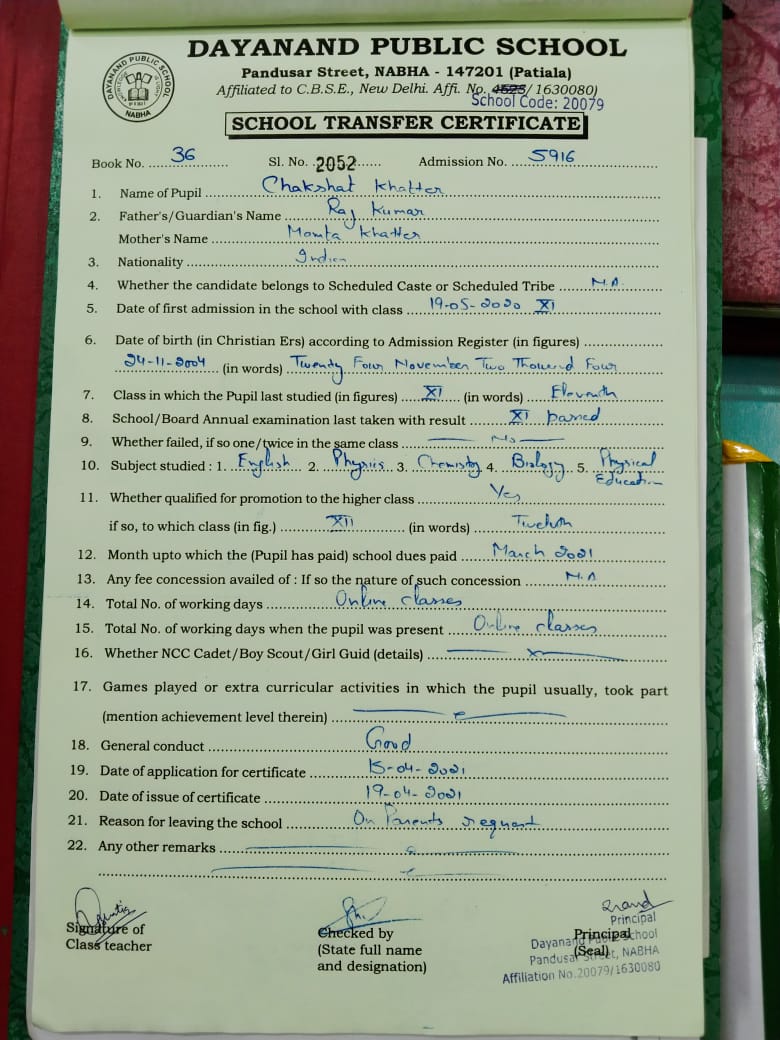 DAYANAND PUBLIC SCHOOL
DAYANAND PUBLIC SCHOOL
NABHA
Pandusar Street, NABHA - 147201 (Patiala)
Affiliated to C.B.S.E., New Delhi. Affi. No. 4525/1630080)
School Code: 20079
SCHOOL TRANSFER CERTIFICATE
Book No. 36 Sl. No. 2052 Admission No. 5916
1. Name of Pupil Chakshat Khatter
2. Father's/Guardian's Name Raj Kumar
Mother's Name Mamta Khatter
3. Nationality Indian
4. Whether the candidate belongs to Scheduled Caste or Scheduled Tribe N.A.
5. Date of first admission in the school with class 19-05-2020 XI
6. Date of birth (in Christian Ers) according to Admission Register (in figures)
24-11-2004 (in words) Twenty Four November Two Thousand Four
7. Class in which the Pupil last studied (in figures) XI (in words) Eleventh
8. School/Board Annual examination last taken with result XI passed
9. Whether failed, if so one/twice in the same class No
10. Subject studied : 1. English 2. Physics 3. Chemistry 4. Biology 5. Physical Education
11. Whether qualified for promotion to the higher class Yes
if so, to which class (in fig.) XII (in words) Twelvth
12. Month upto which the (Pupil has paid) school dues paid March 2021
13. Any fee concession availed of : If so the nature of such concession N.A
14. Total No. of working days Online classes
15. Total No. of working days when the pupil was present Online classes
16. Whether NCC Cadet/Boy Scout/Girl Guid (details)
17. Games played or extra curricular activities in which the pupil usually, took part
(mention achievement level therein)
18. General conduct Good
19. Date of application for certificate 15-04-2021
20. Date of issue of certificate 19-04-2021
21. Reason for leaving the school On Parents request
22. Any other remarks
Signature of
Class teacher
Checked by
(State full name
and designation)
Principal
(Seal)
Principal
Dayanand Public School
Pandusar Street, NABHA
Affiliation No.20079/1630080